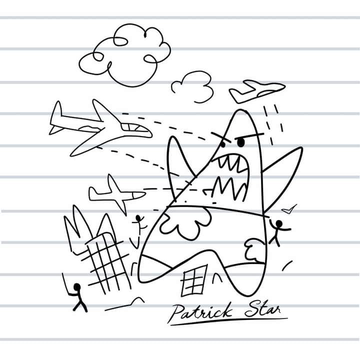 Patrick Star